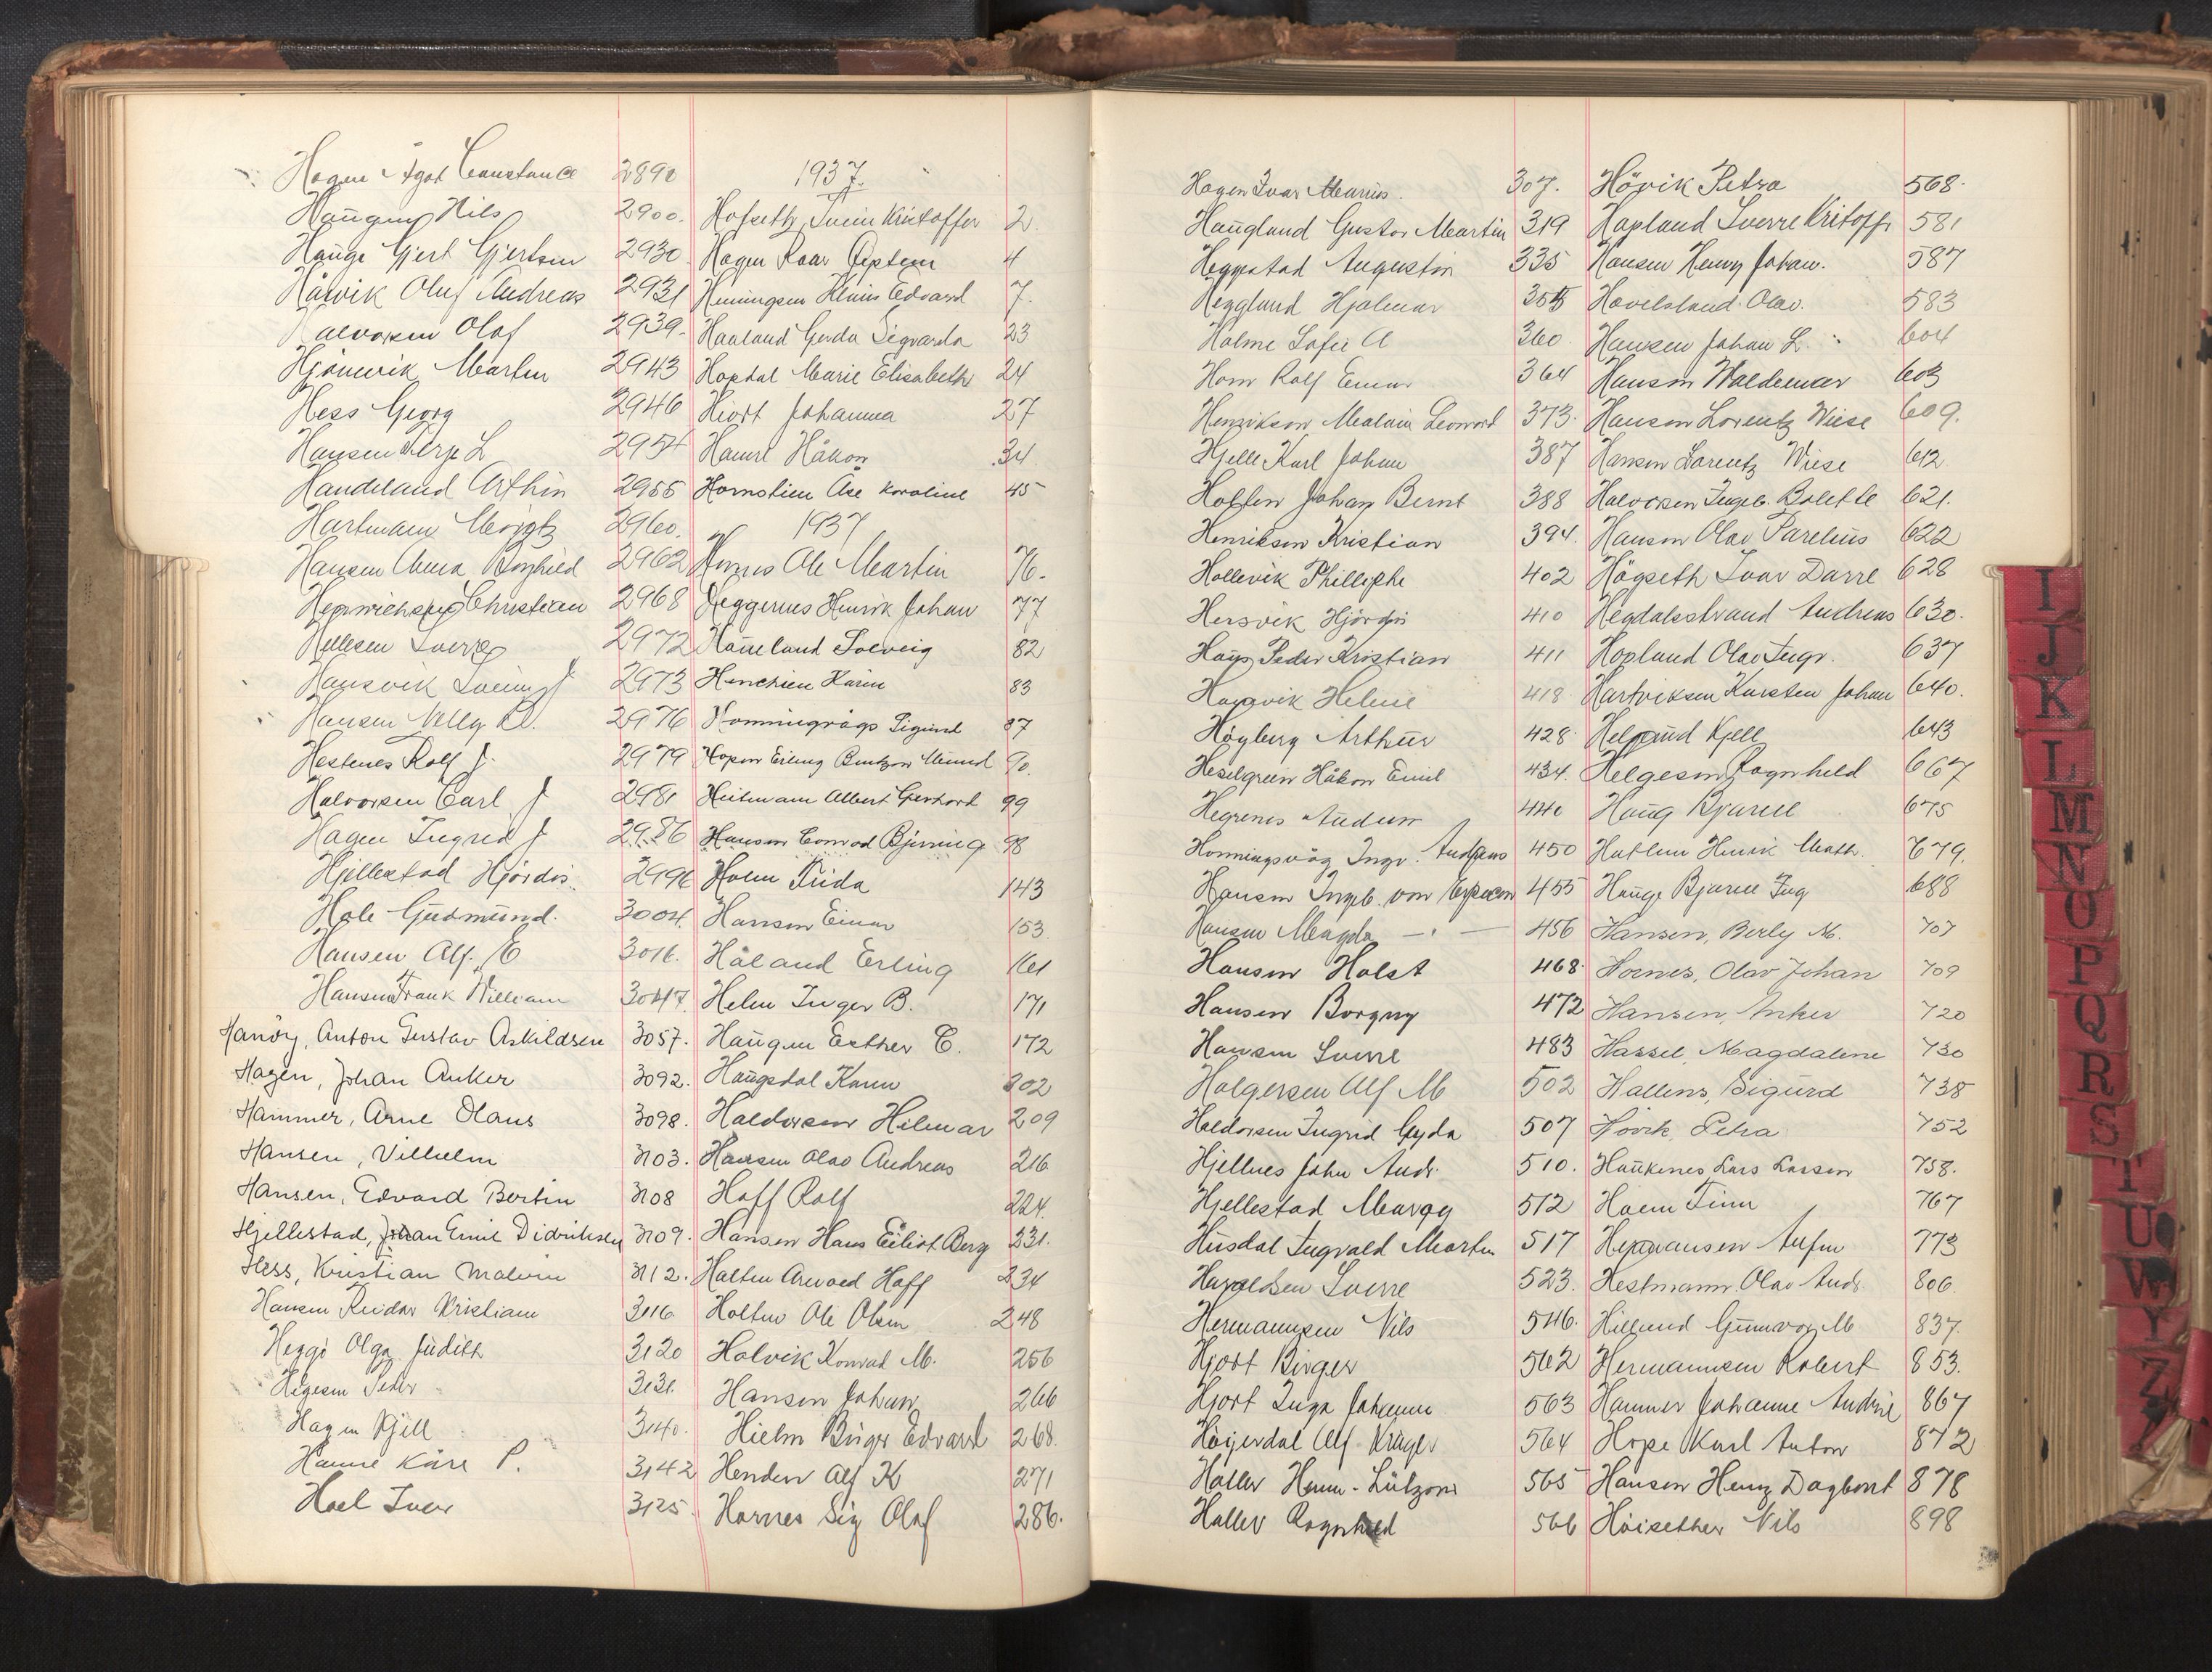 Hagen Ågot Constance 2890
Haugen Nils 2900.
Hauge Gjert Gjertsen 2930
Håvik Oluf Andreas 2931
Halvorsen Olaf 2939.
Martin 2943
Hess Georg 2946
Hansen L 2954
Handeland Arthin 2955
Hartmann 2960.
Hansen Anna Borghild 2962
Christian 2968
Hellesen Sverre 2972
2973
Hansen Nelly 2976
Hestenes Rolf J. 2979
Halvorsen Carl J 2981
Hagen Ingrid J 2986
Hjellestad Hjørdis. 2996
Hole Gudmund. 3004.
Hansen Alf. E 3016.
Hansen Frank William 3047.
Hanøy, Anton Gustav Askildsen 3057.
Hagen, Johan Anker 3092.
Hammer, Arne Olaus 3098.
Hansen, Vilhelm 3103.
Hansen, Edvard Bertin 3108
Hjellestad, Johan Emil Didriksen 3109.
Hess, Kristian Malvin 3112.
Hansen Reidar Kristian 3116
Heggö Olga Judith 3120
Peder 3131.
Hagen Kjell 3140.
Kåre P. 3142
Hoel Iver 3125
1937.
Hofseth, Svein Kristoffer 2.
Hagen Roar 4
Henningsen Edvard 7.
Haaland Gerda Sigvarda 23
Hopdal Marie Elisabeth 24
Hiort Johanna 27
Håkon 34
Hornstien Åse Karoline 45
1937
Ole Martin 76.
Heggernes Henrik Johan 77
Solveig 82
Henchien Karin 83
Honningsvåg Sigurd 87
Hopen Erling 90.
Heitmann Albert Gerhard 99
Hansen Conrad 98
Holm Frida 143
Hansen Einar 153
Håland Erling 161
Helm Inger B. 171
Haugen Esther C. 172
Haugsdal Karen 202
Haldorsen Hilmar 209
Hansen Olav Andreas 216
Hoff Rolf 224.
Hansen Hans Berg 231.
Holten Hoff 234
Holten Ole Olsen 248
Holvik Konrad M. 256
Hansen Johan 266
Hielm Birger Edvard 268.
Henden Alf K 271
Hornes Sig Olaf 286.
Hagen Ivar Marius. 307.
Haugland Gustav Martin 319
Heggestad Augustin 335
Heggland Hjalmar 355
Holme A 360.
Horn Rolf Einar 364
Henrikson Leonard 373.
Hjelle Karl Johan 387
Holten Johan Bernt 388
Henriksen Kristian 394.
Hollevik 402
Hersvik Hjørdis 410
Haus Peder Kristian 411
Helene 418
Höyberg Arthur 428.
Heselgreen Håkon Emil 434.
Hegrenes Audun 440
Honningsvåg Ingv. Andreas 450
Hansen Ingeb. von 455
Hansen Magda — " — 456
Hansen Holst 468.
Hansen Borgny 472
Hansen Sverre 483
Holgersen Alf M 502
Haldorsen Ingrid Gyda 507
Hjellnes John Andr. 510.
Hjellestad Margy 512
Husdal Ingvald Martin 517
Haraldsen Sverre 523.
Hermannsen Nils 546.
Hjort Birger 562
Hjort Inga Johanne 563
Alf Krüger 564
Haller Herm. Lützow 565
Haller Ragnhild 566
Hövik Petra 568.
Hopland Sverre Kristoff 581
Hansen Henry Johan. 587
Hovelsland Olav. 583
Hansen Johan L. 604
Hansen Waldemar 603
Hansen Lorentz Wiese 609.
Hansen Lorentz Wiese 612
Halvorsen Ingeb. Bolette 621.
Hansen Olav Parelius 622
Högseth Ivar Darre 628
Hegdalsstrand Andreas 630.
Hopland Olav Ingv. 637
Hartviksen Karsten Johan 640.
Kjell 643
Helgesen Ragnhild 667
Haug Bjarne 675
Henrik Math. 679.
Hauge Bjarne Ing 688
Hansen, Berly M. 707
Hornes, Olav Johan 709
Hansen, Anker 720
Hassel Magdalene 730
Hallens, Sigurd 738
Hövik, Petra 752
Haukenes Lars Larsen 758.
Finn 767
Hermansen 773
Hestmann Olav Andr. 806
Hillund Gunvor M 837.
Hermannsen Robert 853.
Hammer Johanne Andrine 867
Hope Karl Anton 872
Hansen Henry Dagbert 878
Höisether Nils 898
I
J
K
L
M
N
O
P
Q
R
S
T
U
W
Y
Z